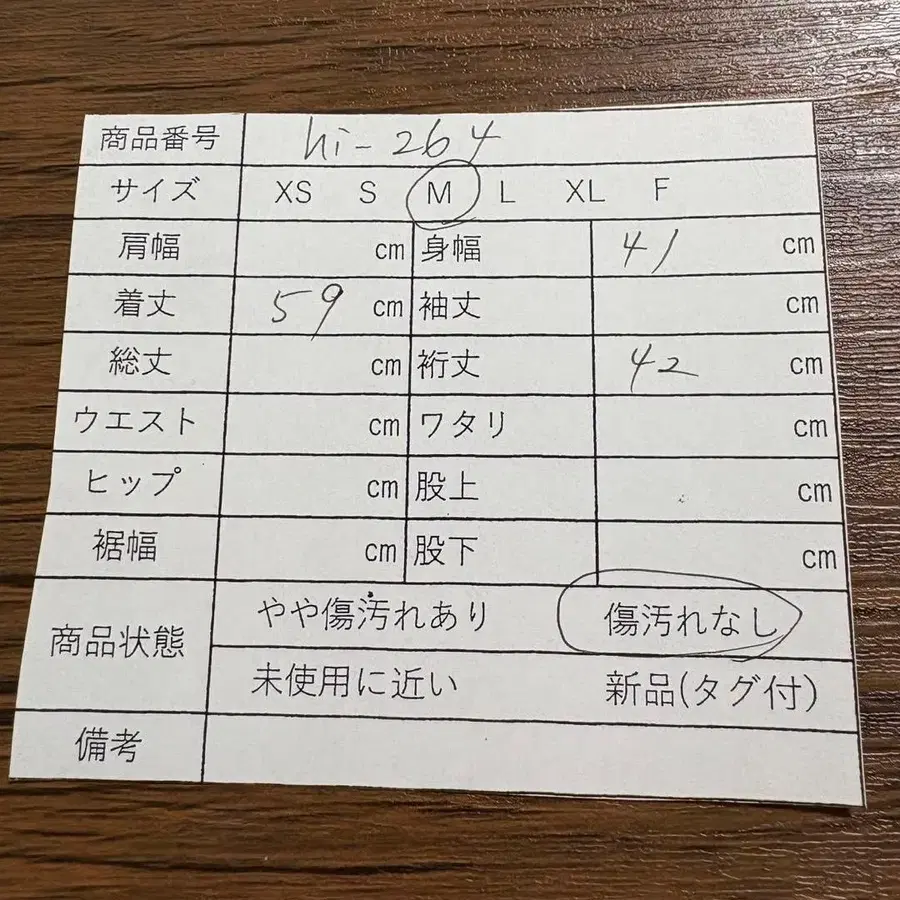 商品番号 hi-264
サイズ XS S M L XL F
肩幅 cm 身幅 41 cm
着丈 59 cm 袖丈 cm
総丈 cm 裄丈 42 cm
ウエスト cm ワタリ cm
ヒップ cm 股上 cm
裾幅 cm 股下 cm
商品状態 やや傷汚れあり 傷汚れなし
未使用に近い 新品(タグ付)
備考